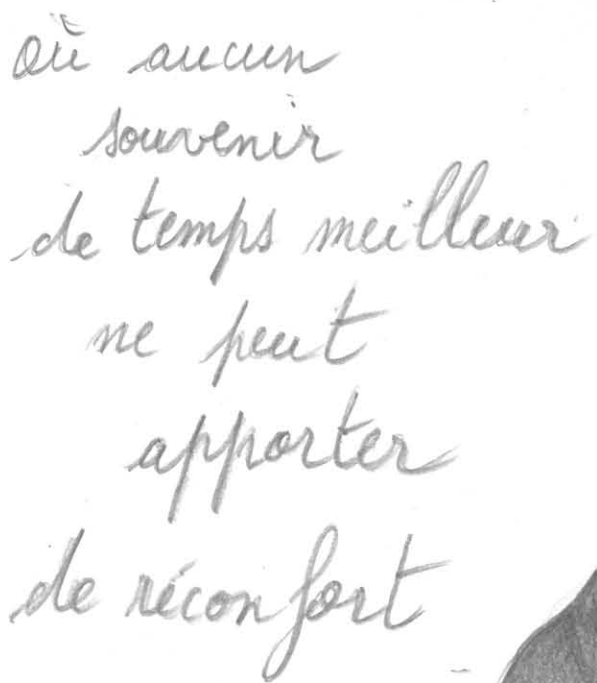 où aucun
souvenir
de temps meilleur
ne peut
apporter
de réconfort